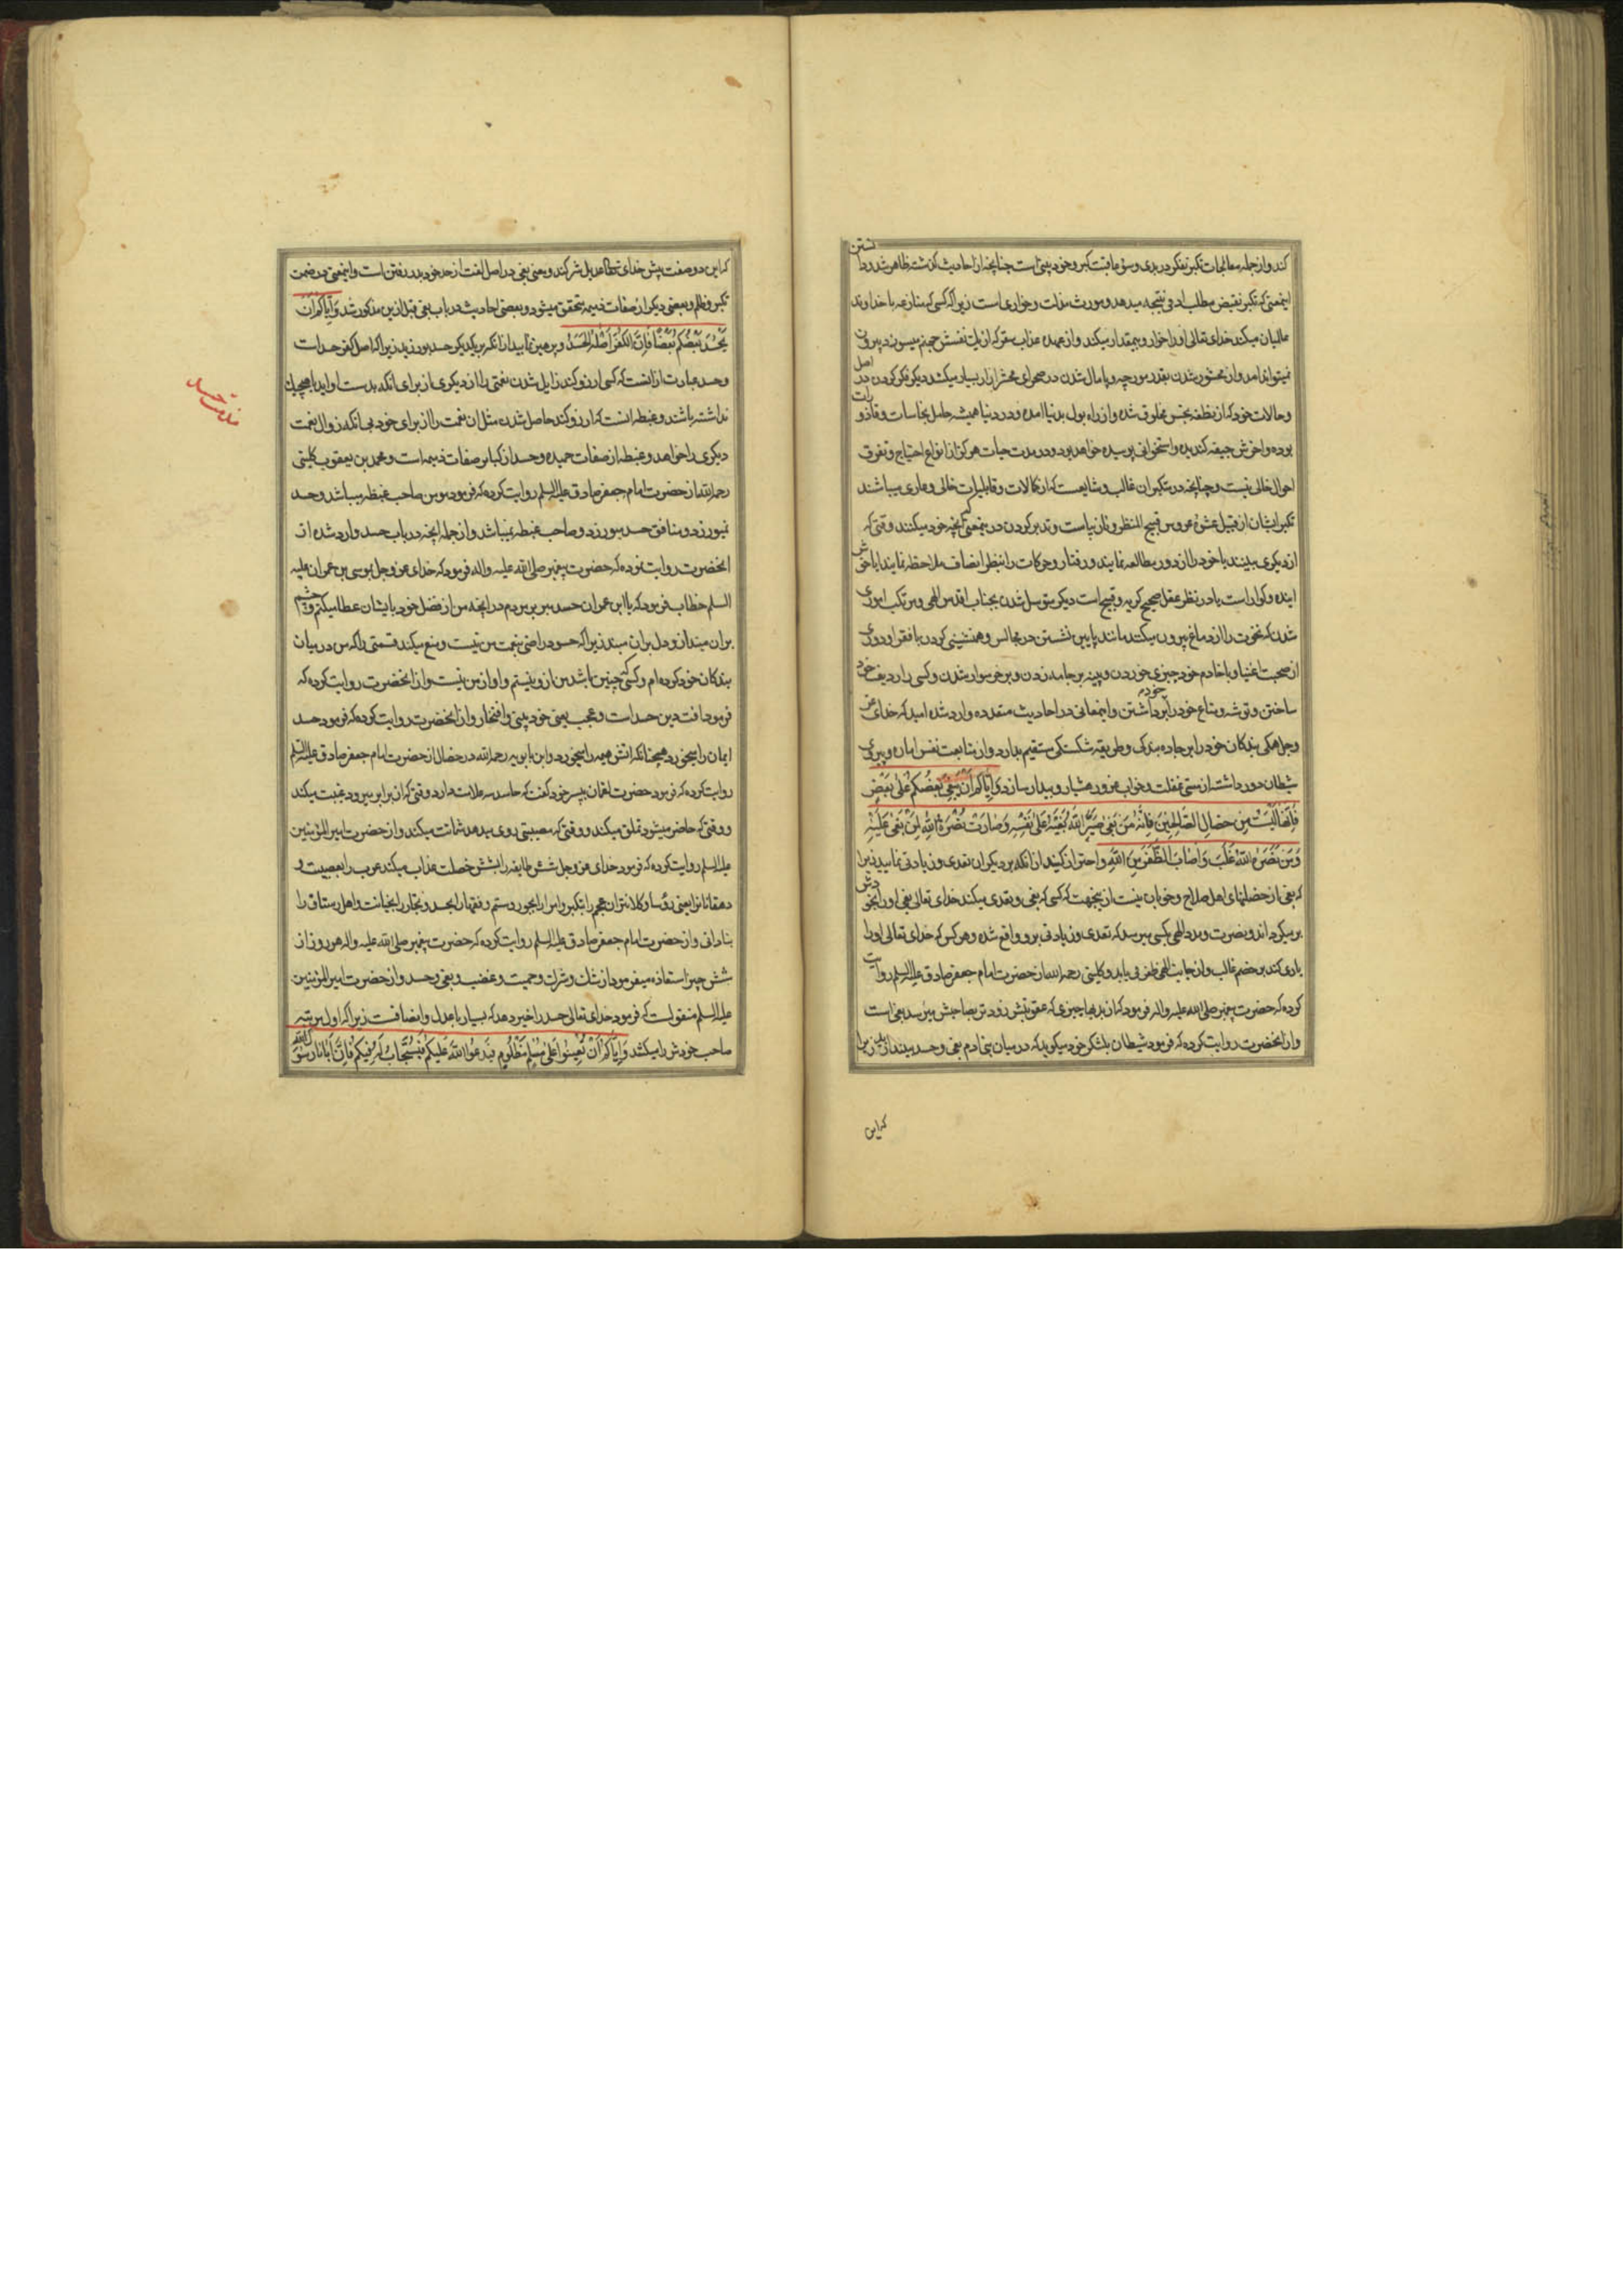 کند و از جمله معالجات تکبر تفکر در بدی و سوء عاقبت کبر و خودبینی است چنانچه از احادیث گذشته ظاهر شد و دانستن
اینمعنی که تکبر نقیض مطلب او نتیجه میدهد و مورث مذلت و خواری است زیرا که کسی که منازعه با خداوند
عالمیان میکند خدای تعالی او را خوار و بیمقدار میکند و از عهده عذاب سقر که از یک نفسش جهنم میسوزد بیرون
نمیتواند امد و از محشور شدن بقدر مورچه و پامال شدن در صحرای محشر ازار بسیار میکشد دیگر فکر کردن در اصل
و حالات خود که از نطفه نجس مخلوق شده و از راه بول بدنیا امده و در دنیا همیشه حامل نجاسات و قاذورات
بوده و اخرش جیفه کندیده و استخوانی پوسیده خواهد بود و در مدت حیات هرگز از انواع احتیاج و تفرق
احوال خالی نیست و چنانچه در متکبران غالب و شایعست که از کمالات و قابلیات خالی و عاری میباشند
تکبر ایشان از قبیل عشوه عروس قبیح المنظر و نازیباست و تدبر کردن در اینمعنی که انچه خود میکنند وقتی که
از دیگری ببینند یا خود را از دور مطالعه نمایند و رفتار و حرکات را بنظر انصاف ملاحظه نمایند ایا خوش
اینده و گواراست یا در نظر عقل صحیح کریه و قبیح است دیگر متوسل شدن بجناب اقدس الهی و مرتکب اموری
شدن که نخوت را از دماغ بیرون میکند مانند پایین نشستن در مجالس و همنشینی کردن با فقرا و دوری
از صحبت اغنیا و با خادم خود چیزی خوردن و پینه بر جامه زدن و بر خر سوار شدن و کسی را ردیف خود
ساختن و توشه و متاع خود را خود برداشتن و اینمعانی در احادیث متعدده وارد شده امید که خدای عز
و جل همگی بندگان خود را بر جاده بندگی و طریقه شکستگی مستقیم بدارد و از متابعت نفس اماره و پیروی
شیطان دور داشته از مستی غفلت و خواب غرور هشیار و بیدار سازد وَایّاکُم اَنْ یَبْغِیَ بَعْضُکُم عَلی بَعْضٍ
فَاِنَّهَا لَیْسَتْ مِن خِصَالِ الصَّالِحِینَ فَاِنَّهُ مَنْ بَغی صَیَّرَ اللهُ بَغْیَهُ عَلی نَفْسِهِ وَصَارَتْ نُصْرَةُ اللهِ لِمَنْ بُغِیَ عَلَیْهِ
وَمَنْ نَصَرَهُ اللهُ غَلَبَ وَاَصَابَ الظَّفَرَ مِنَ اللهِ و احتراز کنید از انکه بر دیگران تعدی و زیادتی نمایید زیرا
که بغی از خصلتهای اهل صلاح و خوبان نیست از اینجهت که کسی که بغی و تعدی میکند خدای تعالی بغی او را بخودش
برمیگرداند و نصرت و مدد الهی بکسی میرسد که تعدی و زیادتی برو واقع شده و هر کس که خدای تعالی او را
یاری کند بر خصم غالب و از جانب الهی ظفر می یابد و کلینی رحمه الله از حضرت امام جعفر صادق علیه السلم روایت
کرده که حضرت پیغمبر صلی الله علیه و اله فرمود که از بدیها چیزی که عقوبتش زودتر بصاحبش میرسد بغی است
و از انحضرت روایت کرده که فرمود شیطان بلشکر خود میگوید که در میان بنی ادم بغی و حسد بیندازید زیرا
که این
که این دو صفت پیش خدای تعالی عدیل شرکند و معنی بغی در اصل لغت از حد خود بدر رفتن است و اینمعنی در ضمن
تکبر و ظلم و بعضی دیگر از صفات ذمیمه متحقق میشود و بعضی احادیث در باب بغی قبل ازین مذکور شد وَایَّاکُمْ اَنْ
یَحْسُدَ بَعْضُکُم بَعْضًا فَاِنَّ الْکُفْرَ اَصْلُهُ الْحَسَدُ و پرهیز نمایید از انکه بر یکدیگر حسد بورزید زیرا که اصل کفر حسد است
و حسد عبارت از انست که کسی ارزو کند زایل شدن نعمتی را از دیگری از برای انکه بدست او اید یا هیچیک
نداشته باشند و غبطه انست که ارزو کند حاصل شدن مثل ان نعمت را از برای خود بی انکه زوال نعمت
دیگری را خواهد و غبطه از صفات حمیده و حسد از کبایر صفات ذمیمه است و محمد بن یعقوب کلینی
رحمه الله از حضرت امام جعفر صادق علیه السلم روایت کرده که فرمود مومن صاحب غبطه میباشد و حسد
نمیورزد و منافق حسد میورزد و صاحب غبطه نمیباشد و از جمله انچه در باب حسد وارد شده از
انحضرت روایت نموده که حضرت پیغمبر صلی الله علیه و اله فرمود که خدای عز و جل بموسی بن عمران علیه
السلم خطاب فرمود که یا ابن عمران حسد مبر بر مردم در انچه من از فضل خود بایشان عطا میکنم و چشم
بران مینداز و دل بران مبند زیرا که حسود راضی بنعمت من نیست و منع میکند قسمتی را که من در میان
بندکان خود کرده ام و کسی که چنین باشد من ازو نیستم و او از من نیست و از انحضرت روایت کرده که
فرمود افت دین حسد است و عجب یعنی خودبینی و افتخار و از انحضرت روایت کرده که فرمود حسد
ایمان را میخورد همچنانکه اتش هیمه را میخورد و ابن بابویه رحمه الله در خصال از حضرت امام جعفر صادق علیه السلم
روایت کرده که فرمود حضرت لقمان بپسر خود گفت که حاسد سه علامت دارد وقتی که از برابر میرود غیبت میکند
و وقتی که حاضر میشود تملق میکند و وقتی که مصیبتی روی میدهد شماتت میکند و از حضرت امیر المؤمنین
علیه السلم روایت کرده که فرمود خدای عز و جل شش طایفه را بشش خصلت عذاب میکند عرب را بعصبیت و
دهقانان را یعنی رؤسا و کلانتران عجم را بتکبر و امرا را بجور و ستم و فقها را بحسد و تجار را بخیانت و اهل رستاق را
بنادانی و از حضرت امام جعفر صادق علیه السلم روایت کرده که حضرت پیغمبر صلی الله علیه و اله هر روز از
شش چیز استعاذه میفرمود از شک و شرک و حمیت و غضب و بغی و حسد و از حضرت امیر المؤمنین
علیه السلم منقولست که فرمود خدای تعالی حسد را خیر دهد که بسیار با عدل و انصافست زیرا که اول مرتبه
صاحب خودش را میکشد وَایَّاکُمْ اَنْ تُعِینُوا عَلی مُسْلِمٍ مَظْلُومٍ فَیَدْعُوَا اللهَ عَلَیْکُمْ فَیُسْتَجَابَ لَهُ فِیکُمْ فَاِنَّ اَبَانَا رَسُولَ الله
مذمت حسد